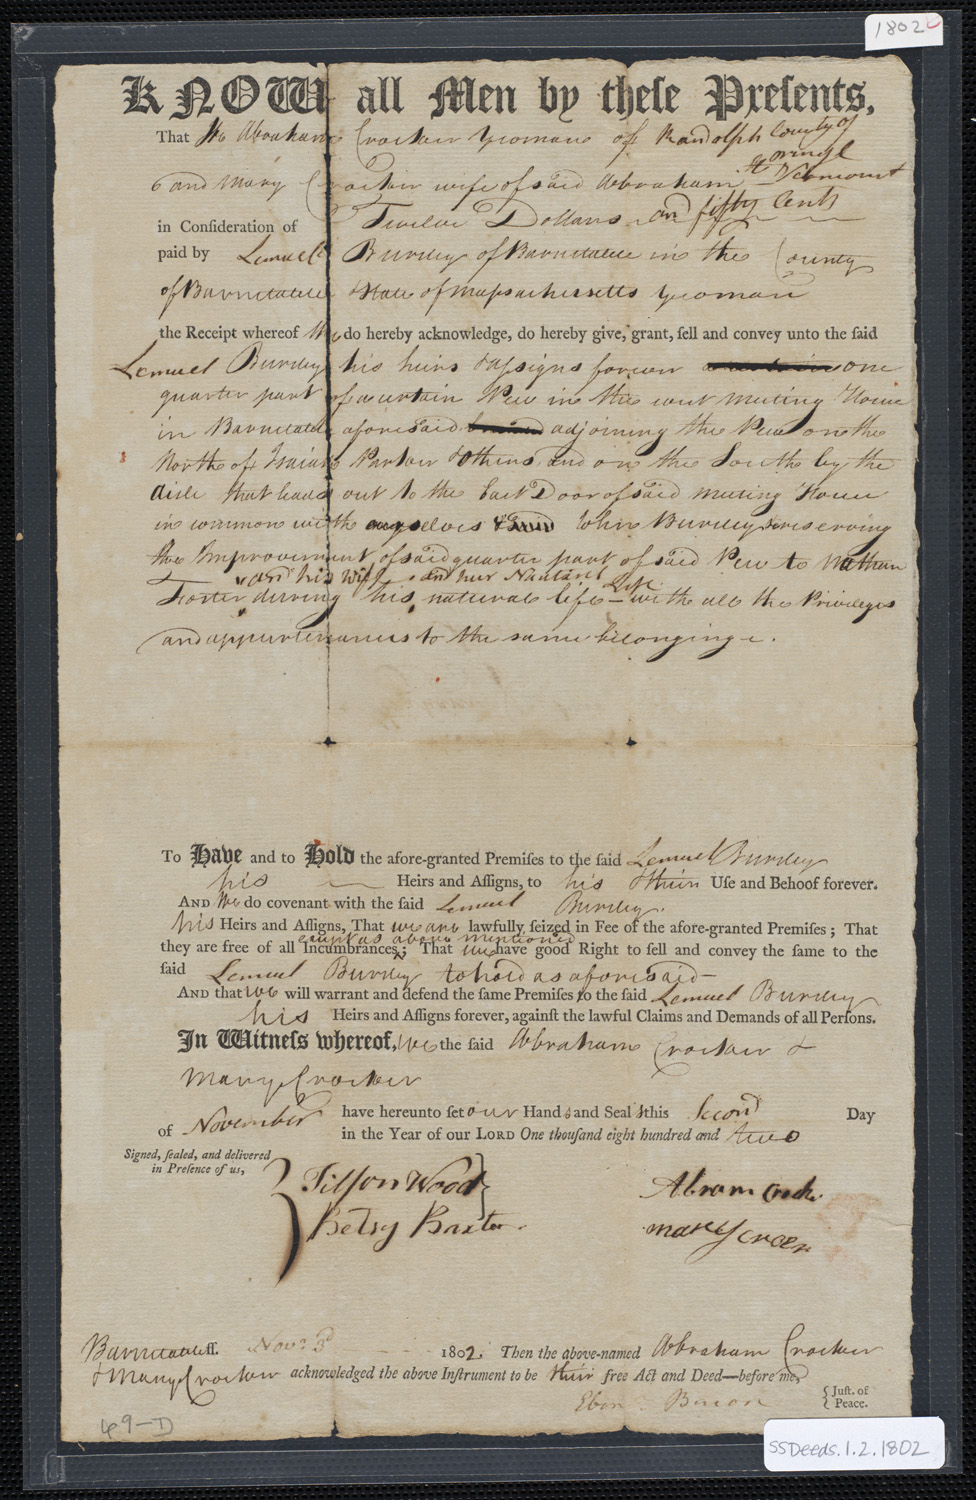 1802
KNOW all Men by theſe Preſents,
That We Abraham Crocker Yeoman of Randolph County of
orringe
& and Mary Crocker wife of said Abraham Vermont
in Conſideration of Twelve Dollars and fifty Cents
paid by Lemuel Bursley of Barnstable in the County
of Barnstable State of Massachusetts Yeoman
the Receipt whereof We do hereby acknowledge, do hereby give, grant, ſell and convey unto the ſaid
Lemuel Bursley his heirs & assigns forever one
quarter part of a certain Pew in the west meeting House
in Barnstable aforesaid adjoining the Pew on the
North of Isaiah Parker & others and on the South by the
aisle that leads out to the East Door of said meeting House
in common with ourselves & John Bursley reserving
the Improvement of said quarter part of said Pew to Nathan
and his wife and her Natural Life
Foster during his natural life with all the Privileges
and appurtenances to the same belonging.
To Have and to Hold the afore-granted Premiſes to the ſaid Lemuel Bursley
his Heirs and Aſſigns, to his & their Uſe and Behoof forever.
AND We do covenant with the ſaid Lemuel Bursley.
his Heirs and Aſſigns, That we are lawfully ſeized in Fee of the afore-granted Premiſes; That
except as above mentioned
they are free of all Incumbrances; That we have good Right to ſell and convey the ſame to the
ſaid Lemuel Bursley to hold as aforesaid
AND that we will warrant and defend the ſame Premiſes to the ſaid Lemuel Bursley
his Heirs and Aſſigns forever, againſt the lawful Claims and Demands of all Perſons.
In Witneſs whereof, We the ſaid Abraham Crocker &
Mary Crocker
have hereunto ſet our Hands and Seals this Second Day
of November in the Year of our LORD One thouſand eight hundred and two
Signed, ſealed, and delivered
in Preſence of us,
Tilson Wood
Betsy Baxter
Abram Crock.
mary crocr
Barnstable ſſ. Nov. 3d 1802. Then the above-named Abraham Crocker
& Mary Crocker acknowledged the above Inſtrument to be their free Act and Deed—before me,
Eben Bacon Juſt. of
Peace.
49-D
SSDeeds.1.2.1802